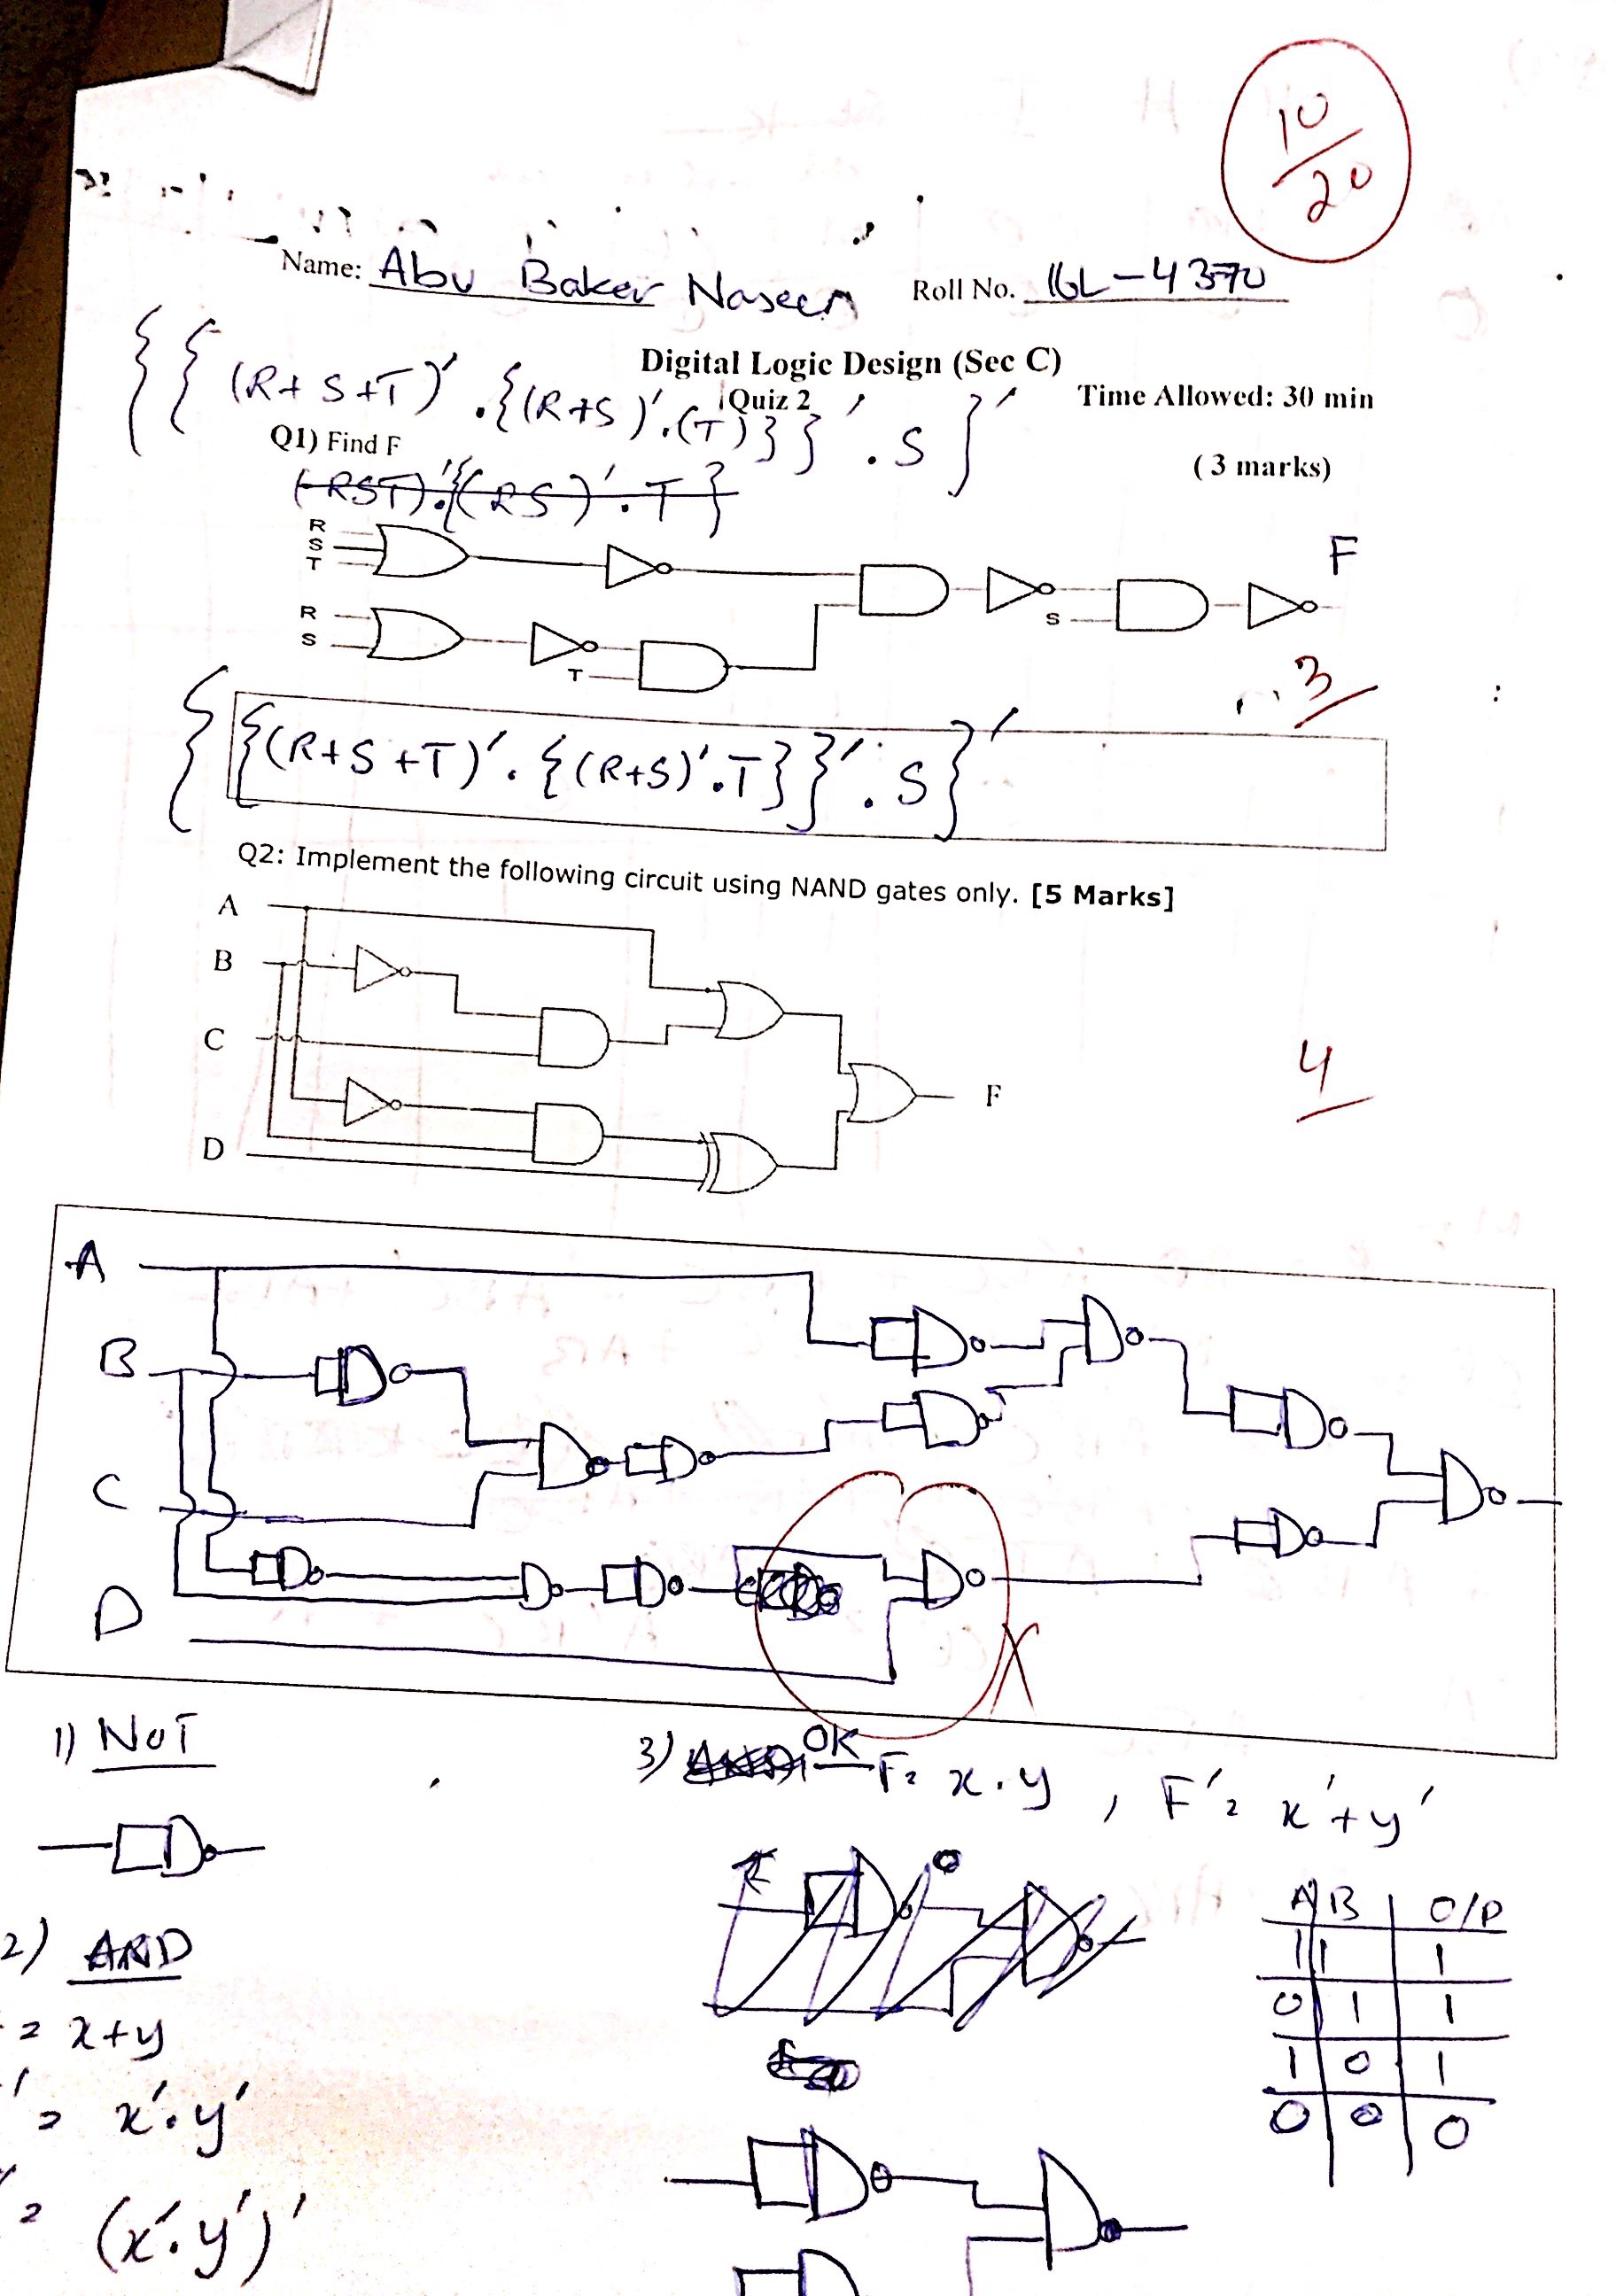 10/20
Name: Abu Baker Naseem Roll No. 16L-4370
Digital Logic Design (Sec C)
{{(R+S+T)'.{(R+S)'.(T)}}'.S}'
Quiz 2 Time Allowed: 30 min
Q1) Find F (3 marks)
(RST)'.{(RS)'.T}
R
S
T
F
R
S
S
T
3
{{(R+S+T)'.{(R+S)'.T}}'.S}'
Q2: Implement the following circuit using NAND gates only. [5 Marks]
A
B
C
4
F
D
A
B
C
D
1) NOT
3) OR F= x.y , F'= x'+y'
A B O/P
1 1 1
2) AND
0 1 1
= x+y
1 0 1
' = x'.y'
0 0 0
= (x'.y')'